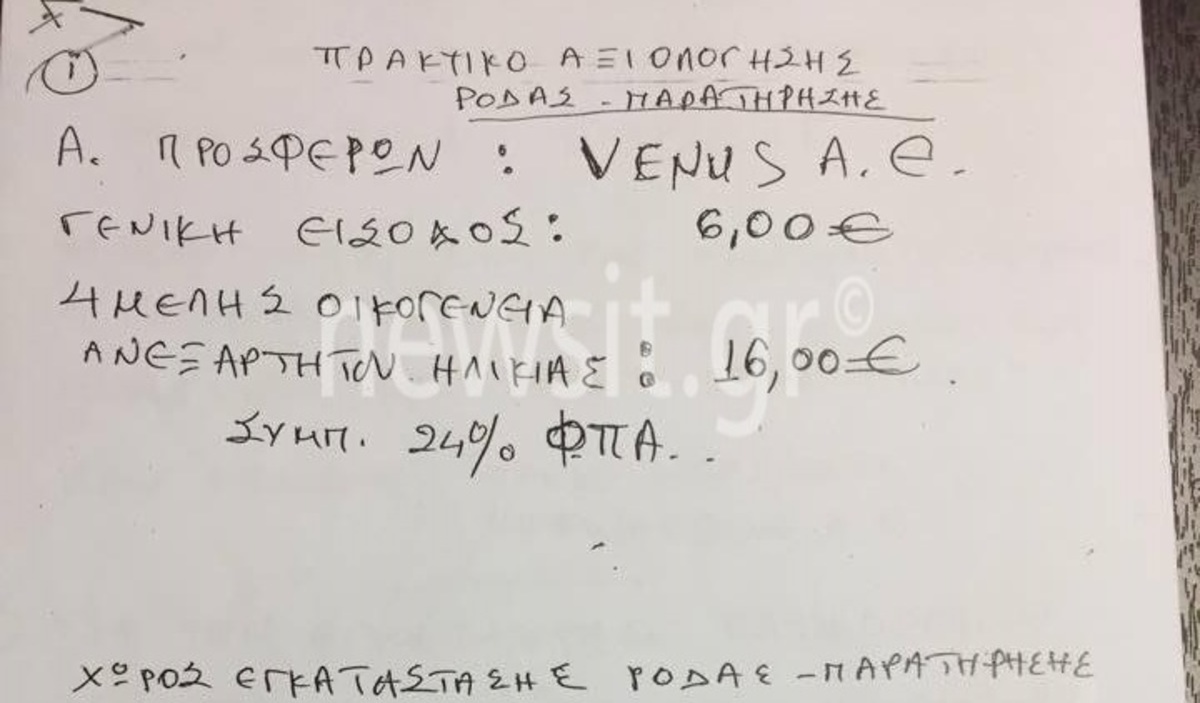 1
ΠΡΑΚΤΙΚΟ ΑΞΙΟΛΟΓΗΣΗΣ
ΡΟΔΑΣ - ΠΑΡΑΤΗΡΗΣΗΣ
Α. ΠΡΟΣΦΕΡΩΝ : VENUS A.E.
ΓΕΝΙΚΗ ΕΙΣΟΔΟΣ: 6,00 €
4 ΜΕΛΗΣ ΟΙΚΟΓΕΝΕΙΑ
ΑΝΕΞΑΡΤΗΤΩΝ ΗΛΙΚΙΑΣ : 16,00 €.
ΣΥΜΠ. 24% ΦΠΑ..
newsit.gr©
ΧΩΡΟΣ ΕΓΚΑΤΑΣΤΑΣΗΣ ΡΟΔΑΣ - ΠΑΡΑΤΗΡΗΣΗΣ